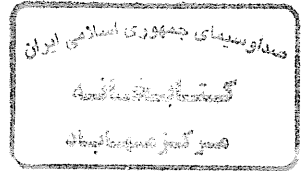 صدا و سیمای جمهوری اسلامی ایران
کتابخانه
مرکز مهاباد